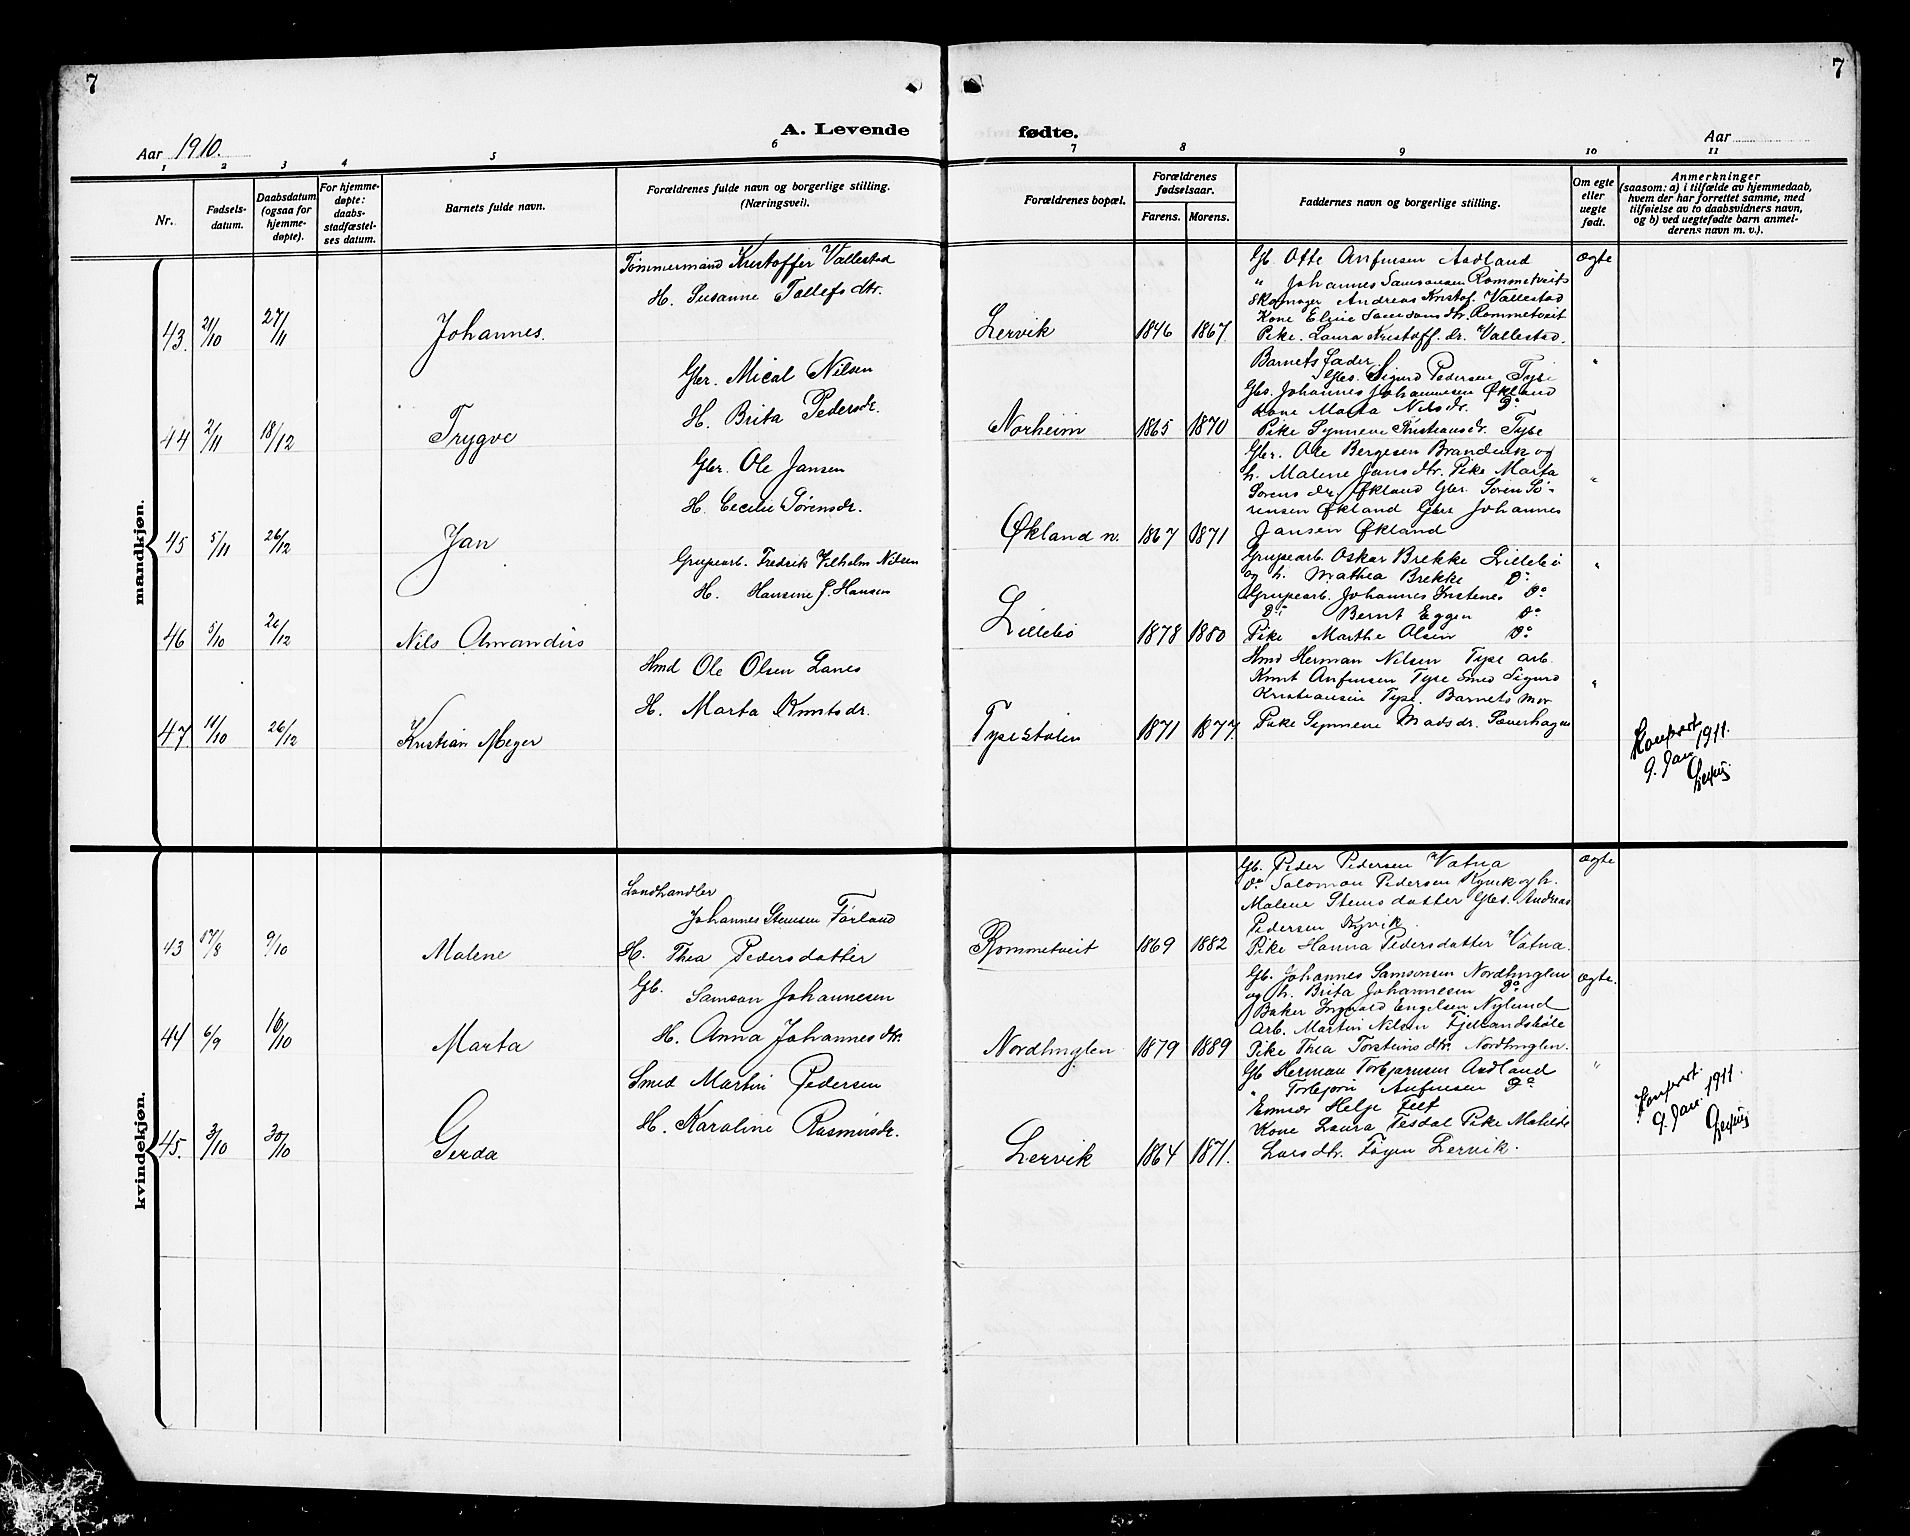 7
7
A. Levende fødte.
Aar 1910.
Aar
1 2 3 4 5 6 7 8 9 10 11
Nr.
Fødsels-
datum.
Daabsdatum
(ogsaa for
hjemme-
døpte).
For hjemme-
døpte:
daabs-
stadfæstel-
ses datum.
Barnets fulde navn.
Forældrenes fulde navn og borgerlige stilling.
(Næringsvei).
Forældrenes bopæl.
Forældrenes
fødselsaar.
Farens. Morens.
Faddernes navn og borgerlige stilling.
Om egte
eller
uegte
født.
Anmerkninger
(saasom: a) i tilfælde av hjemmedaab,
hvem der har forrettet samme, med
tilføielse av to daabsvidners navn,
og b) ved uegtefødte barn anmel-
derens navn m. v.).
mandkjøn.
43. 21/10 27/11 Johannes.
Tømmermand Kristoffer Vallestad
H. Susanne Tollefsdtr.
Lervik 1846 1867
Gb. Otte Anfinsen Aadland
" Johannes Samsonsen Rommetveit
Skomager Andreas Kristof. Vallestad
Kone Eline Samsonsdtr. Rommetveit
Pike. Laura Kristoff. dr. Vallestad.
ægte
44 2/11 18/12 Trygve
Gbr. Mical Nilsen
H. Brita Pedersdr.
Norheim 1865 1870
Barnets fader
Gbs. Sigurd Pedersen Tyse
Gbs. Johannes Johannesen Økland
Kone Marta Nilsdr. Do
Pike Synneve Kristiansdr. Tyse
"
45 5/11 26/12 Jan
Gbr. Ole Jansen
H. Cecilie Sørensdr.
Økland n. 1867 1871
Gbr. Ole Bergesen Brandvik og
h. Malene Jansdtr. Pike Marta
Sørensdr. Økland Gbr. Søren Sø-
rensen Økland Gbr Johannes
Jansen Økland
"
46 5/10 26/12 Nils Amandus
Grupearb. Fredrik Vilhelm Nilsen
H. Hansine J. Hansen
Lillebø 1878 1880
Grupearb. Oskar Brekke Lillebø
og h. Mathea Brekke Do
Grupearb. Johannes Instenes Do
Do Bernt Eggen Do
Pike Marthe Olsen Do
"
47 11/10 26/12 Kristian Meyer
Hmd Ole Olsen Lanes
H. Marta Knutsdr.
Tysestølen 1871 1877.
Hmd Herman Nilsen Tyse arb.
Knut Anfinsen Tyse Smed Sigurd
Kristiansen Tyse. Barnets mor
Pike Synneve Madsdr. Sæverhagen
"
Konfrert.
9. Jan 1911.
kvindekjøn.
43 17/8 9/10 Malene
Landhandler
Johannes Stensen Førland
H. Thea Pedersdatter
Rommetveit 1869 1882
Gb. Peder Pedersen Vatna
Do Salomon Pedersen Kyvik og h.
Malene Stensdatter Gbs. Andreas
Pedersen Kyvik
Pike Hanna Pedersdatter Vatna.
ægte
44 6/9 16/10 Marta
Gb. Samson Johannesen
H. Anna Johannesdtr.
Nordhuglen 1879 1889
Gb. Johannes Samsonsen Nordhuglen
og h. Brita Johannesen Do
Baker Ingvald Engelsen Nylund
Arb. Martin Nilsen Fjellandsbøle
Pike Thea Torsteinsdtr. Nordhuglen.
ægte.
45. 3/10 30/10 Gerda
Smed Martin Pedersen
H. Karoline Rasmusdr.
Lervik 1864 1871.
Gb Herman Torbjørnsen Aadland
" Torbjørn Anfinsen Do
Helge Felt
Kone Laura Tesdal Pike Matilde
Larsdtr. Føyen Lervik.
"
Konfrert.
9. Jan. 1911.